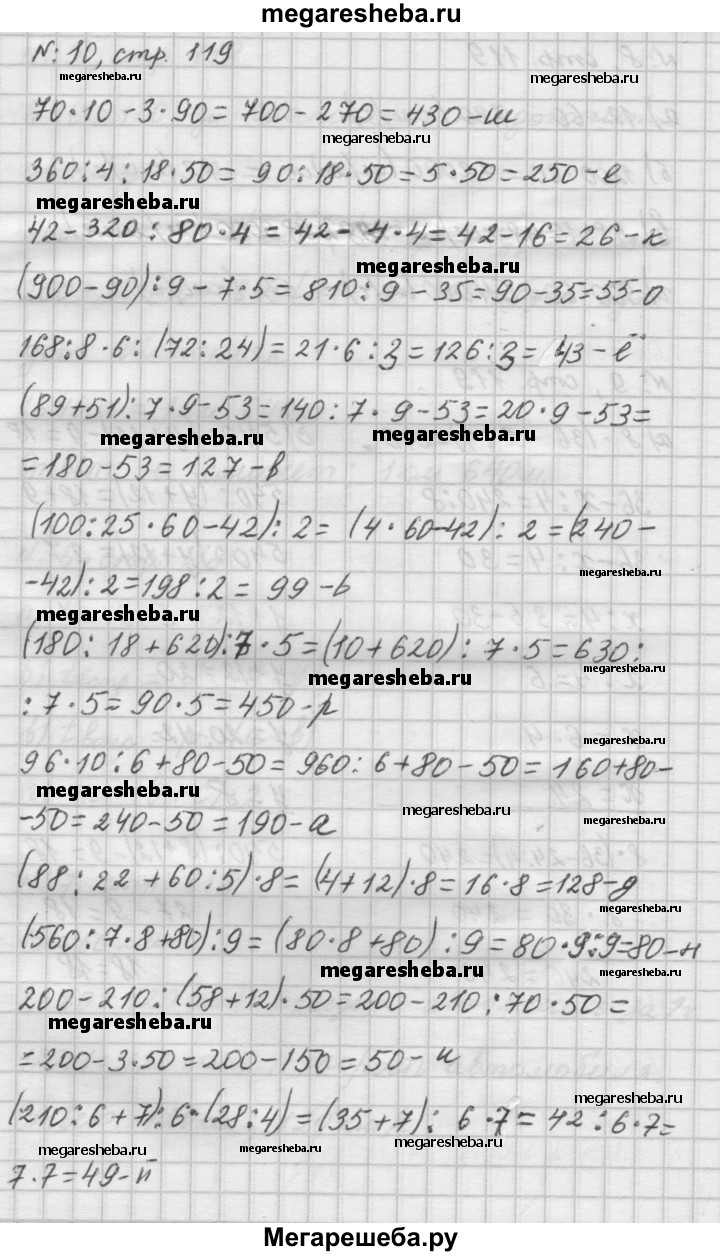 megaresheba.ru
№: 10, стр. 119
megaresheba.ru megaresheba.ru
70·10-3·90=700-270=430-ш
megaresheba.ru
360:4:18·50= 90:18·50=5·50=250-е
megaresheba.ru
42-320:80·4=42-4·4=42-16=26-к
megaresheba.ru
(900-90):9-7·5=810:9-35=90-35=55-о
168:8·6:(72:24)=21·6:3=126:3=43-ё
(89+51):7·9-53=140:7·9-53=20·9-53=
megaresheba.ru megaresheba.ru
=180-53=127-в
(100:25·60-42):2=(4·60-42):2=(240-
megaresheba.ru
-42):2=198:2= 99-ь
megaresheba.ru
(180:18+620):7·5=(10+620):7·5=630:
megaresheba.ru
:7·5=90·5=450-р
96·10:6+80-50=960:6+80-50=160+80-
megaresheba.ru megaresheba.ru
-50=240-50=190-а
(88:22+60:5)·8=(4+12)·8=16·8=128-д
(560:7·8+80):9=(80·8+80):9=80·9:9=80-н
megaresheba.ru
200-210:(58+12)·50=200-210:70·50=
megaresheba.ru
=200-3·50=200-150=50-и
(210:6+7):6·(28:4)=(35+7):6·7=42:6·7=
megaresheba.ru megaresheba.ru megaresheba.ru
7·7=49-й
Мегарешеба.ру